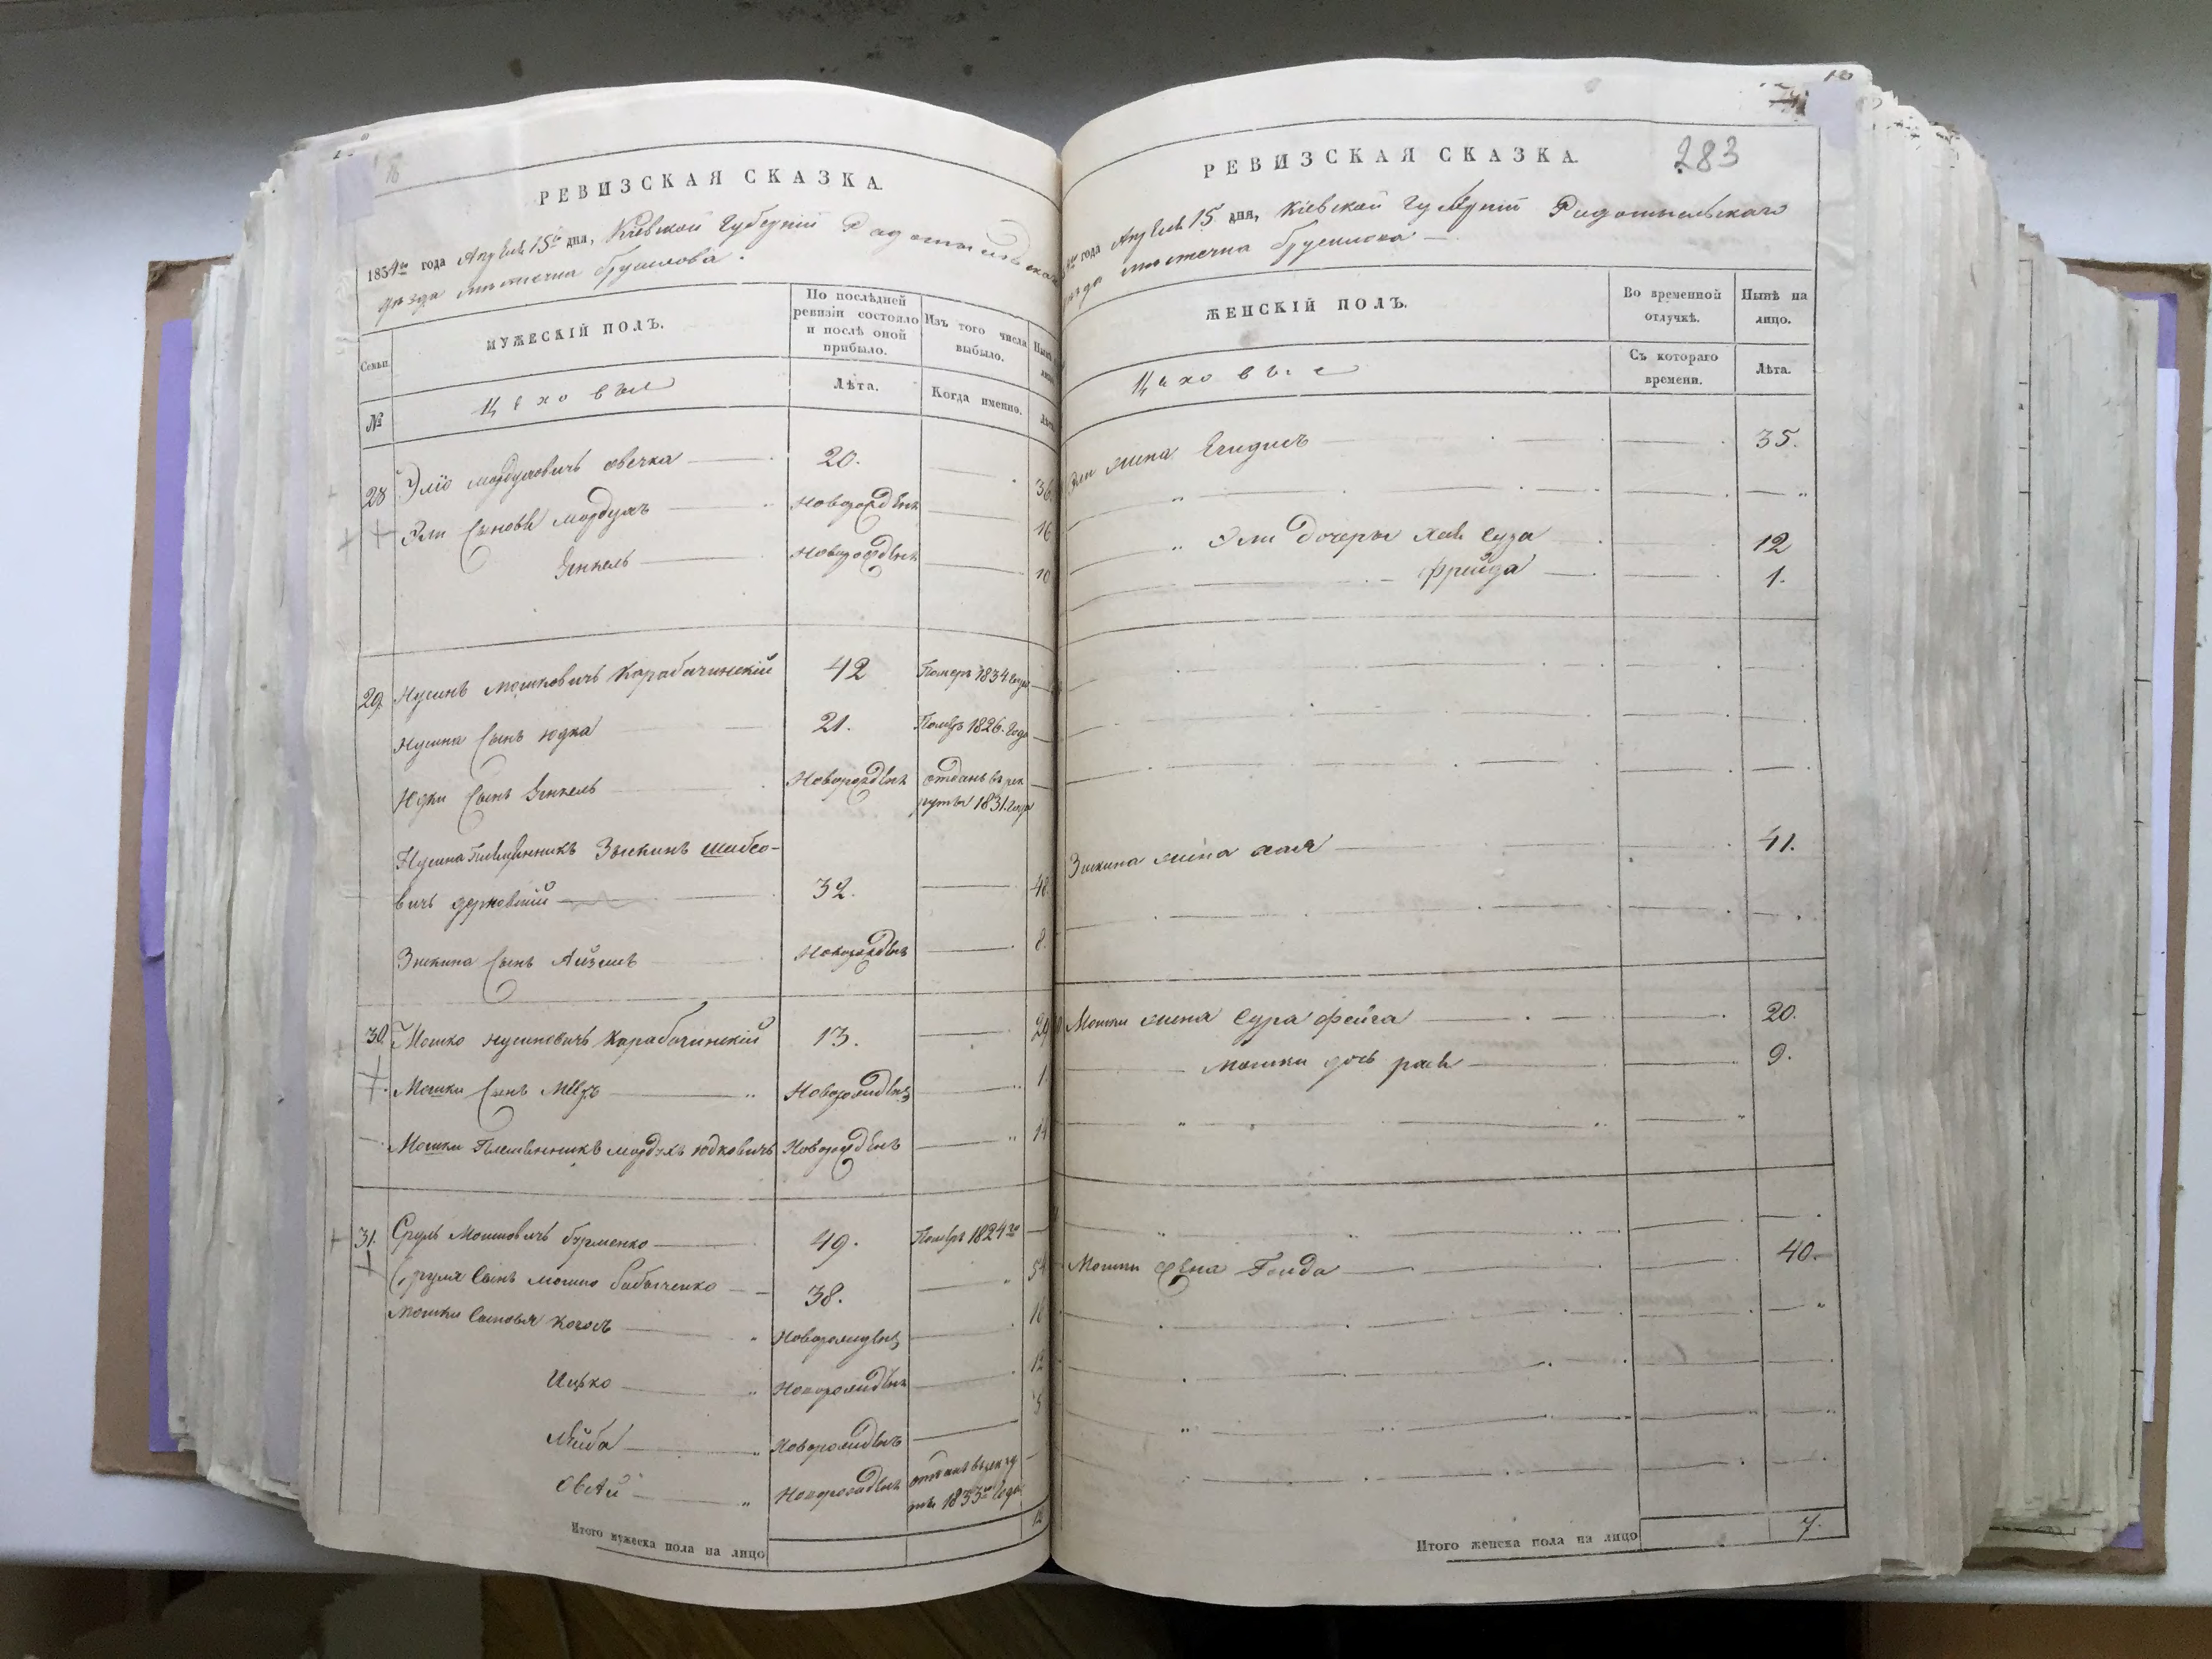 РЕВИЗСКАЯ СКАЗКА.
1834го года Апреля 15го дня, Кіевской Губерніи Радомысльскаго
уезда местечка Брусилова.
Семьи.
МУЖЕСКІЙ ПОЛЪ.
По послѣдней ревизіи состояло и послѣ оной прибыло.
Изъ того числа выбыло.
№
Цеховые
Лѣта.
Когда именно.
28 Эліо Мордуховичъ Овечка 20. 36.
Эли Сыновья Мордухъ Новорожденъ 16
Янкель Новорожденъ 10
29. Нусинъ Мошковичъ Карабачинскій 42 Померъ 1834 года
Нусина Сынъ Юдка 21. Померъ 1826. года
Юдки Сынъ Янкель Новорожденъ отданъ въ рек
руты 1831. года
Нусина Племянникъ Зыскинъ
вичъ 32. 48
Зыскина Сынъ Айзикъ Новорожденъ 8
30. Мошко Нусиновичъ Карабачинскій 13. 29
Мошки Сынъ Новорожденъ 1
Мошки Племянникъ Мордухъ Юдковичъ Новорожденъ 14
31. Сруль Мошковичъ 49. Померъ 1824го
Сруля Сынъ Мошко 38. 54
Мошки Сыновья Новорожденъ 16
Ицько Новорожденъ 12
Лейба Новорожденъ
Овсѣй Новорожденъ отданъ въ рекру
ты 1833го года
Итого мужеска пола на лицо 12
283
РЕВИЗСКАЯ СКАЗКА.
года Апреля 15 дня, Кіевской Губерніи Радомысльскаго
уезда местечка Брусилова
ЖЕНСКІЙ ПОЛЪ.
Во временной отлучкѣ.
Нынѣ на лицо.
Цеховые
Съ котораго времени.
Лѣта.
Эли жена 35.
Эли Дочери Хая Сура 12
Фрейда 1.
Зыскина жена Хая 41.
Мошки жена Сура Фейга 20.
Мошки дочь 9.
Мошки жена 40.
Итого женска пола на лицо 7.